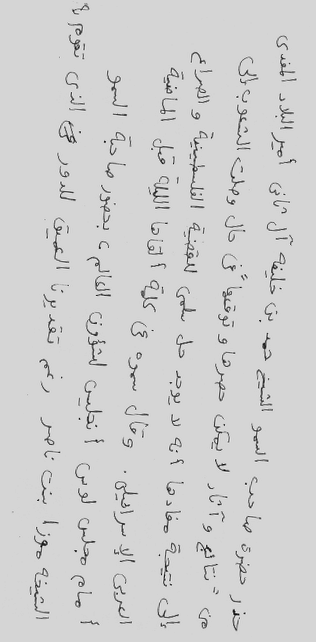 حذر حضرة صاحب السمو الشيخ حمد بن خليفة آل ثاني أمير البلاد المفدى
من " نتائج وآثار لا يمكن حصرها وتوقعها " في حال وصلت الشعوب إلى
إلى نتيجة مفادها أنه لا يوجد حل سلمي للقضية الفلسطينية والصراع
العربي الإسرائيلي. وقال سموه في كلمة ألقاها الليلة قبل الماضية
أمام مجلس لوس أنجليس للشؤون العالمية بحضور صاحبة السمو
الشيخة موزا بنت ناصر رغم تقديرنا العميق للدور الذي تقوم به